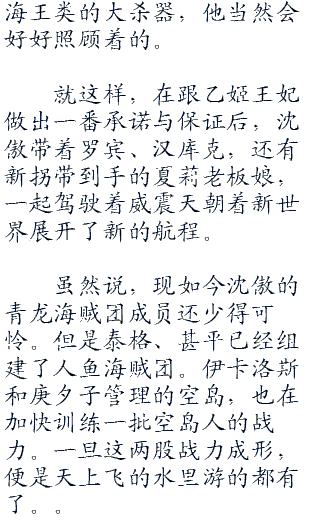 海王类的大杀器，他当然会
好好照顾着的。
就这样，在跟乙姬王妃
做出一番承诺与保证后，沈
傲带着罗宾、汉库克，还有
新拐带到手的夏莉老板娘，
一起驾驶着威震天朝着新世
界展开了新的航程。
虽然说，现如今沈傲的
青龙海贼团成员还少得可
怜。但是泰格、甚平已经组
建了人鱼海贼团。伊卡洛斯
和庚夕子管理的空岛，也在
加快训练一批空岛人的战
力。一旦这两股战力成形，
便是天上飞的水里游的都有
了。。